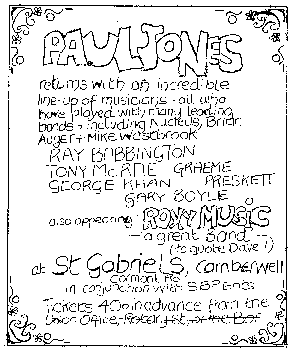 PAUL JONES
returns with an incredible
line-up of musicians - all who
have played with many leading
bands - including Nucleus, Brian
Auger + Mike Westbrook
RAY BABBINGTON
TONY McPTIE GRAEME
GEORGE KHAN PRESKETT
GARY BOYLE
also appearing ROXY MUSIC
- a great band -
(to quote Dave!)
at St Gabriels, Camberwell
Cormont Rd
in conjunction with SBP Ents
Tickets 40p in advance from the
Union Office, or the Bar